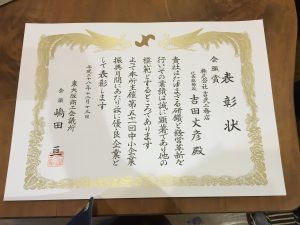 表彰状
会頭賞
株式会社 吉武工務店
代表取締役 吉田文彦 殿
貴社はたゆまざる研鑽と経営革新を
行いその業績は誠に顕著であり他の
模範とするところであります
よって本所主催第五十一回中小企業
振興月間にあたり茲に優良企業と
して表彰します
平成二十八年十一月十六日
東大阪商工会議所
会頭 嶋田 亘